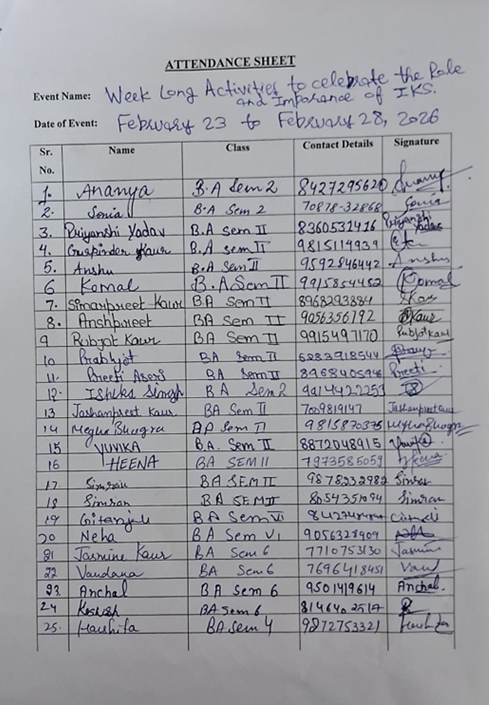 ATTENDANCE SHEET
Event Name: Week Long Activities to celebrate the Role
and Imporance of IKS.
Date of Event: February 23 to February 28, 2026
Sr. No. Name Class Contact Details Signature
1. Ananya B.A Sem 2 8427295620
2. Sonia B.A Sem 2 70878-32868 Sonia
3. Priyanshi Yadav B.A sem II 8360532416 Priyanshi Yadav
4. Gurpinder Kaur B.A sem II 9815114939
5. Anshu B.A Sem II 9592846442 Anshu
6 Komal B.A Sem II 9915854452 Komal
7. Simarpreet Kaur BA Sem II 8968293884 Kaur
8. Anshpreet BA Sem II 9056356192 Kaur
9 Rubjot Kaur BA Sem II 9915497170 Rubjot Kaur
10 Prabhjot BA Sem II 6283918544
11. Preeti BA Sem II Preeti
12. Ishika Singh BA Sem 2 9914422253
13 Jashanpreet Kaur. BA Sem II 7009819147 Jashanpreet Kaur
14 Megha BA Sem II 9815870375
15 YUVIKA B.A. Sem II 8872048915
16 HEENA BA SEM II 7973585059 Heena
17 Simran BA SEM II 9878232982 Simran
18 Simran BA SEM II 8054351094 Simran
19 Gitanjali BA Sem VI
20 Neha BA Sem VI 9056328909
21 Jasmine Kaur BA Sem 6 7710753130 Jasmine
22 Vandana BA Sem 6 7696418451 Vand
23. Anchal BA Sem 6 9501419614 Anchal.
24 BA Sem 6 814640 2517
25. Harshita BA Sem 4 9872753321 Harshita